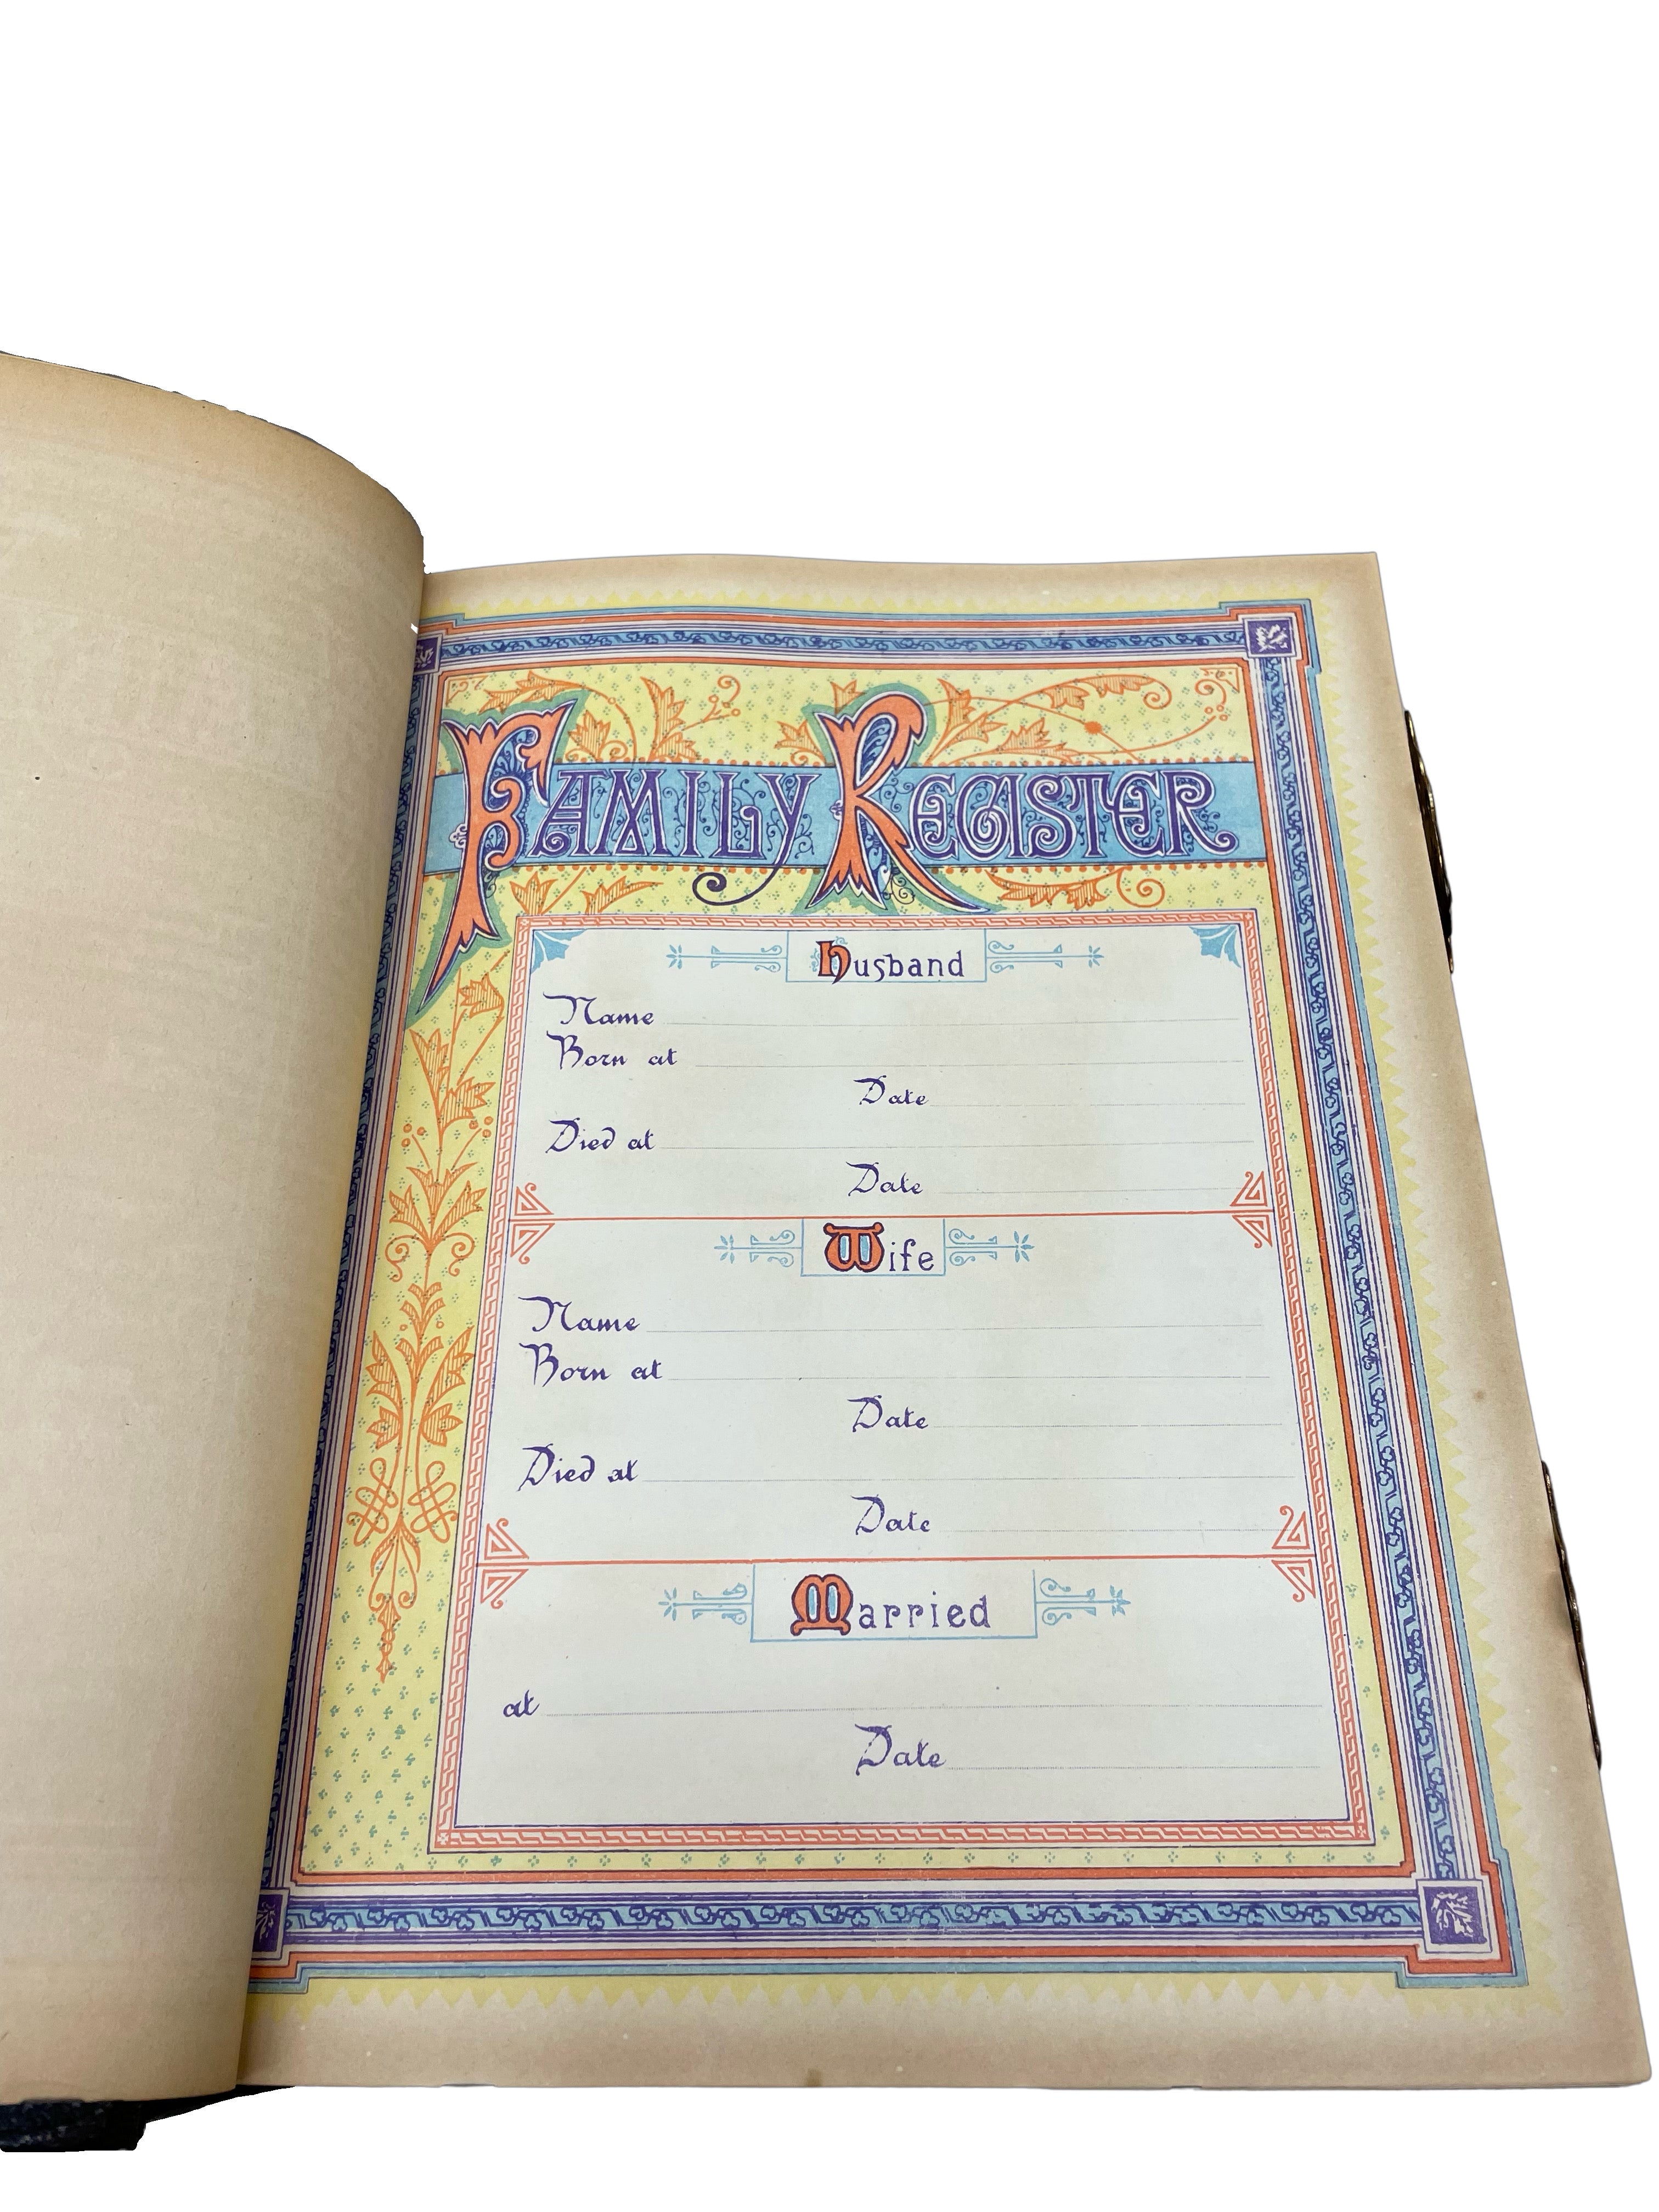 FAMILY REGISTER
Husband
Name
Born at
Date
Died at
Date
Wife
Name
Born at
Date
Died at
Date
Married
at
Date